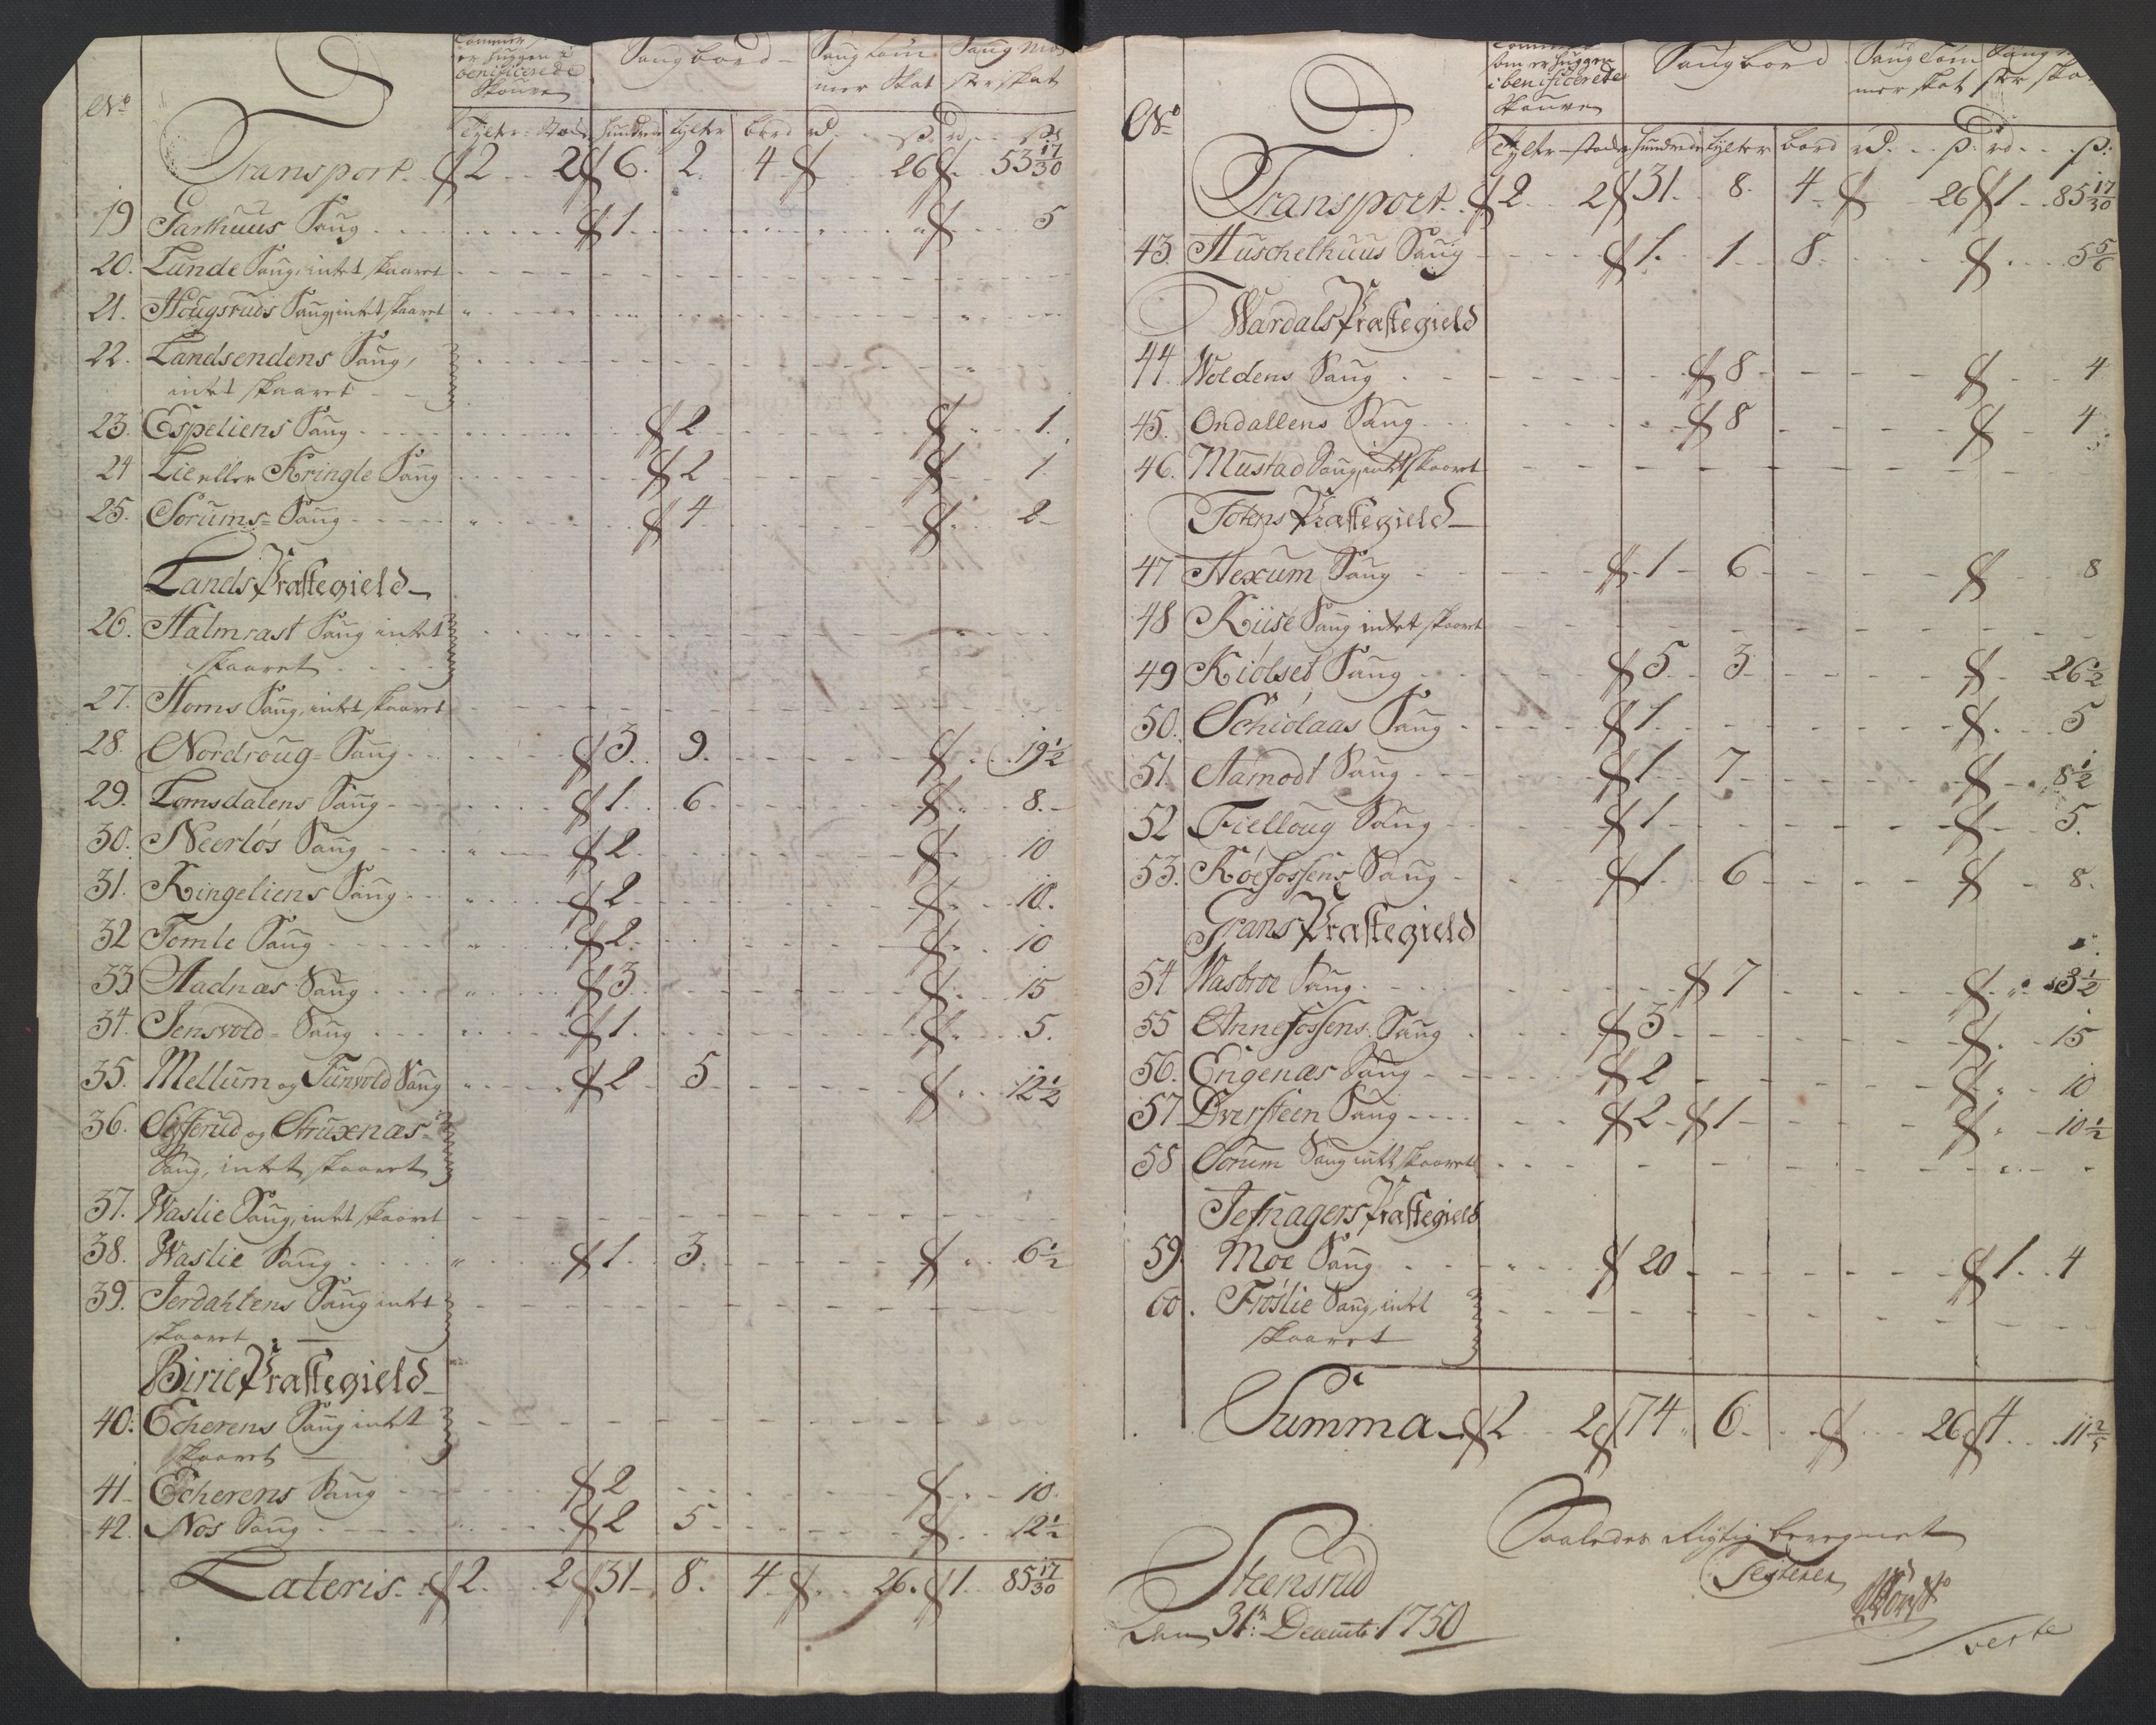 No
benificerede
Skouve
Saug bord
Saug Tøm
mer Skat
Saug Me
ster skat
Tylter hundrede tylter bord rd. s. rd. s.
Transport 2 2 6. 2. 4 26 53 17/30
19 Garhuus Saug 1 5
20. Lunde Saug, intet skaaret
21. Hougsruds Saug, intet skaaret
22. Landsendens Saug,
intet skaaret
23. Espeliens Saug 2 1.
24 Lie eller Kringle Saug 2 1.
25. Sørums Saug 4 2
Lands Præstegield
26. Halmrast Saug intet
skaaret
27. Homs Saug, intet skaaret
28. Nordroug Saug 3. 9. 19 1/2
29. Lomsdalens Saug 1. 6 8.
30. Neerløs Saug 2. 10
31. Ringeliens Saug 2 10.
32 Tomle Saug 2. 10
33 Aadnæs Saug 3 15
34. Jensvold Saug 1. 5.
35. Mellum og Tunvold Saug 2 5 12 1/2
36. Sefferud og Struxnæs
Saug, intet skaaret
37. Waslie Saug, intet skaaret
38. Waslie Saug 1. 3. 6 1/2
39. Jerdahlens Saug intet
skaaret
Birie Præstegield
40: Echerens Saug intet
skaaret
41 Echerens Saug 2 10
42. Nøs Saug 2 5 12 1/2
Lateris 2. 2 31 8. 4 26. 1. 85 17/30
No
som er huggen
i benificerede
Skouve
Saug bord
Saug Tøm
mer skat
Saug
ster ska
Tylter hundrede tylter bord rd. s: rd. s:
Transport 2 2 31. 8. 4 26 1 85 17/30
43. Huschelhuus Saug 1. 1 8. 5 5/6
Wardals Præstegield
44. Woldens Saug 8 4
45. Ondallens Saug 8 4
46. Mustad Saug, intet skaaret
Totens Præstegield
47 Hexum Saug 1 6 8
48 Kiise Saug intet skaaret
49 Kiølset Saug 5 3 26 1/2
50. Schiølaas Saug 1. 5
51. Aamodt Saug 1 7 8 1/2
52 Fielloug Saug 1 5.
53. Røefossens Saug 1. 6 8.
Grans Præstegield
54 Wasbroe Saug 7 3 1/2
55 Annefossens Saug 3 15
56. Engenæs Saug 2 10
57 Dversteen Saug 2 1 10 1/2
58 Sørum Saug intet skaaret
Jefnagers Præstegield
59. Moe Saug 20 1. 4
60. Frøslie Saug, intet
skaaret
Summa 2 2 74. 6. 26 4. 11 2/5
Saaledes Rigtig beregnet
Testerer
Steensrud
den 31te Decembr 1750
verte